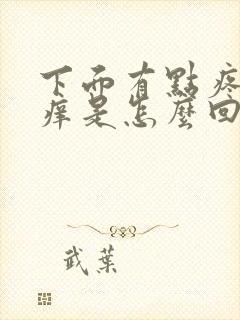 下面有點疼
痒是怎麼回
武葉